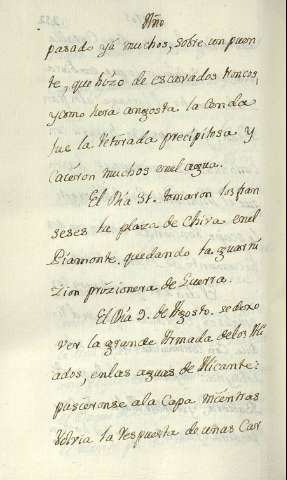 Año
pasado yá muchos, sobre un puen
te, que hizo de escavados troncos,
y como hera angosta la senda
fue la retirada precipitosa y
caieron muchos en el agua.
El Dia 31. tomaron los fran
seses la plaza de Chiva en el
Piamonte, quedando la guarni
zion prizionera de Guerra.
El Dia 9. de Agosto. se dexo
ver la grande Armada de los Ali
ados, en las aguas de Alicante:
pusieronse a la Capa mientras
volvia la respuesta de unas Car